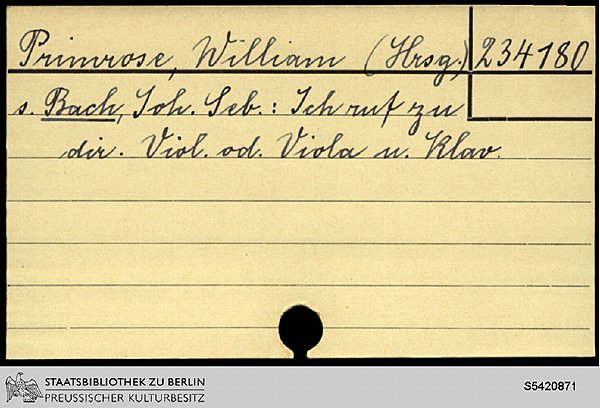 Primrose, William (Hrsg.) 234180
s. Bach, Joh. Seb.: Ich ruf zu
dir. Viol. od. Viola u. Klav.
STAATSBIBLIOTHEK ZU BERLIN
PREUSSISCHER KULTURBESITZ
S5420871